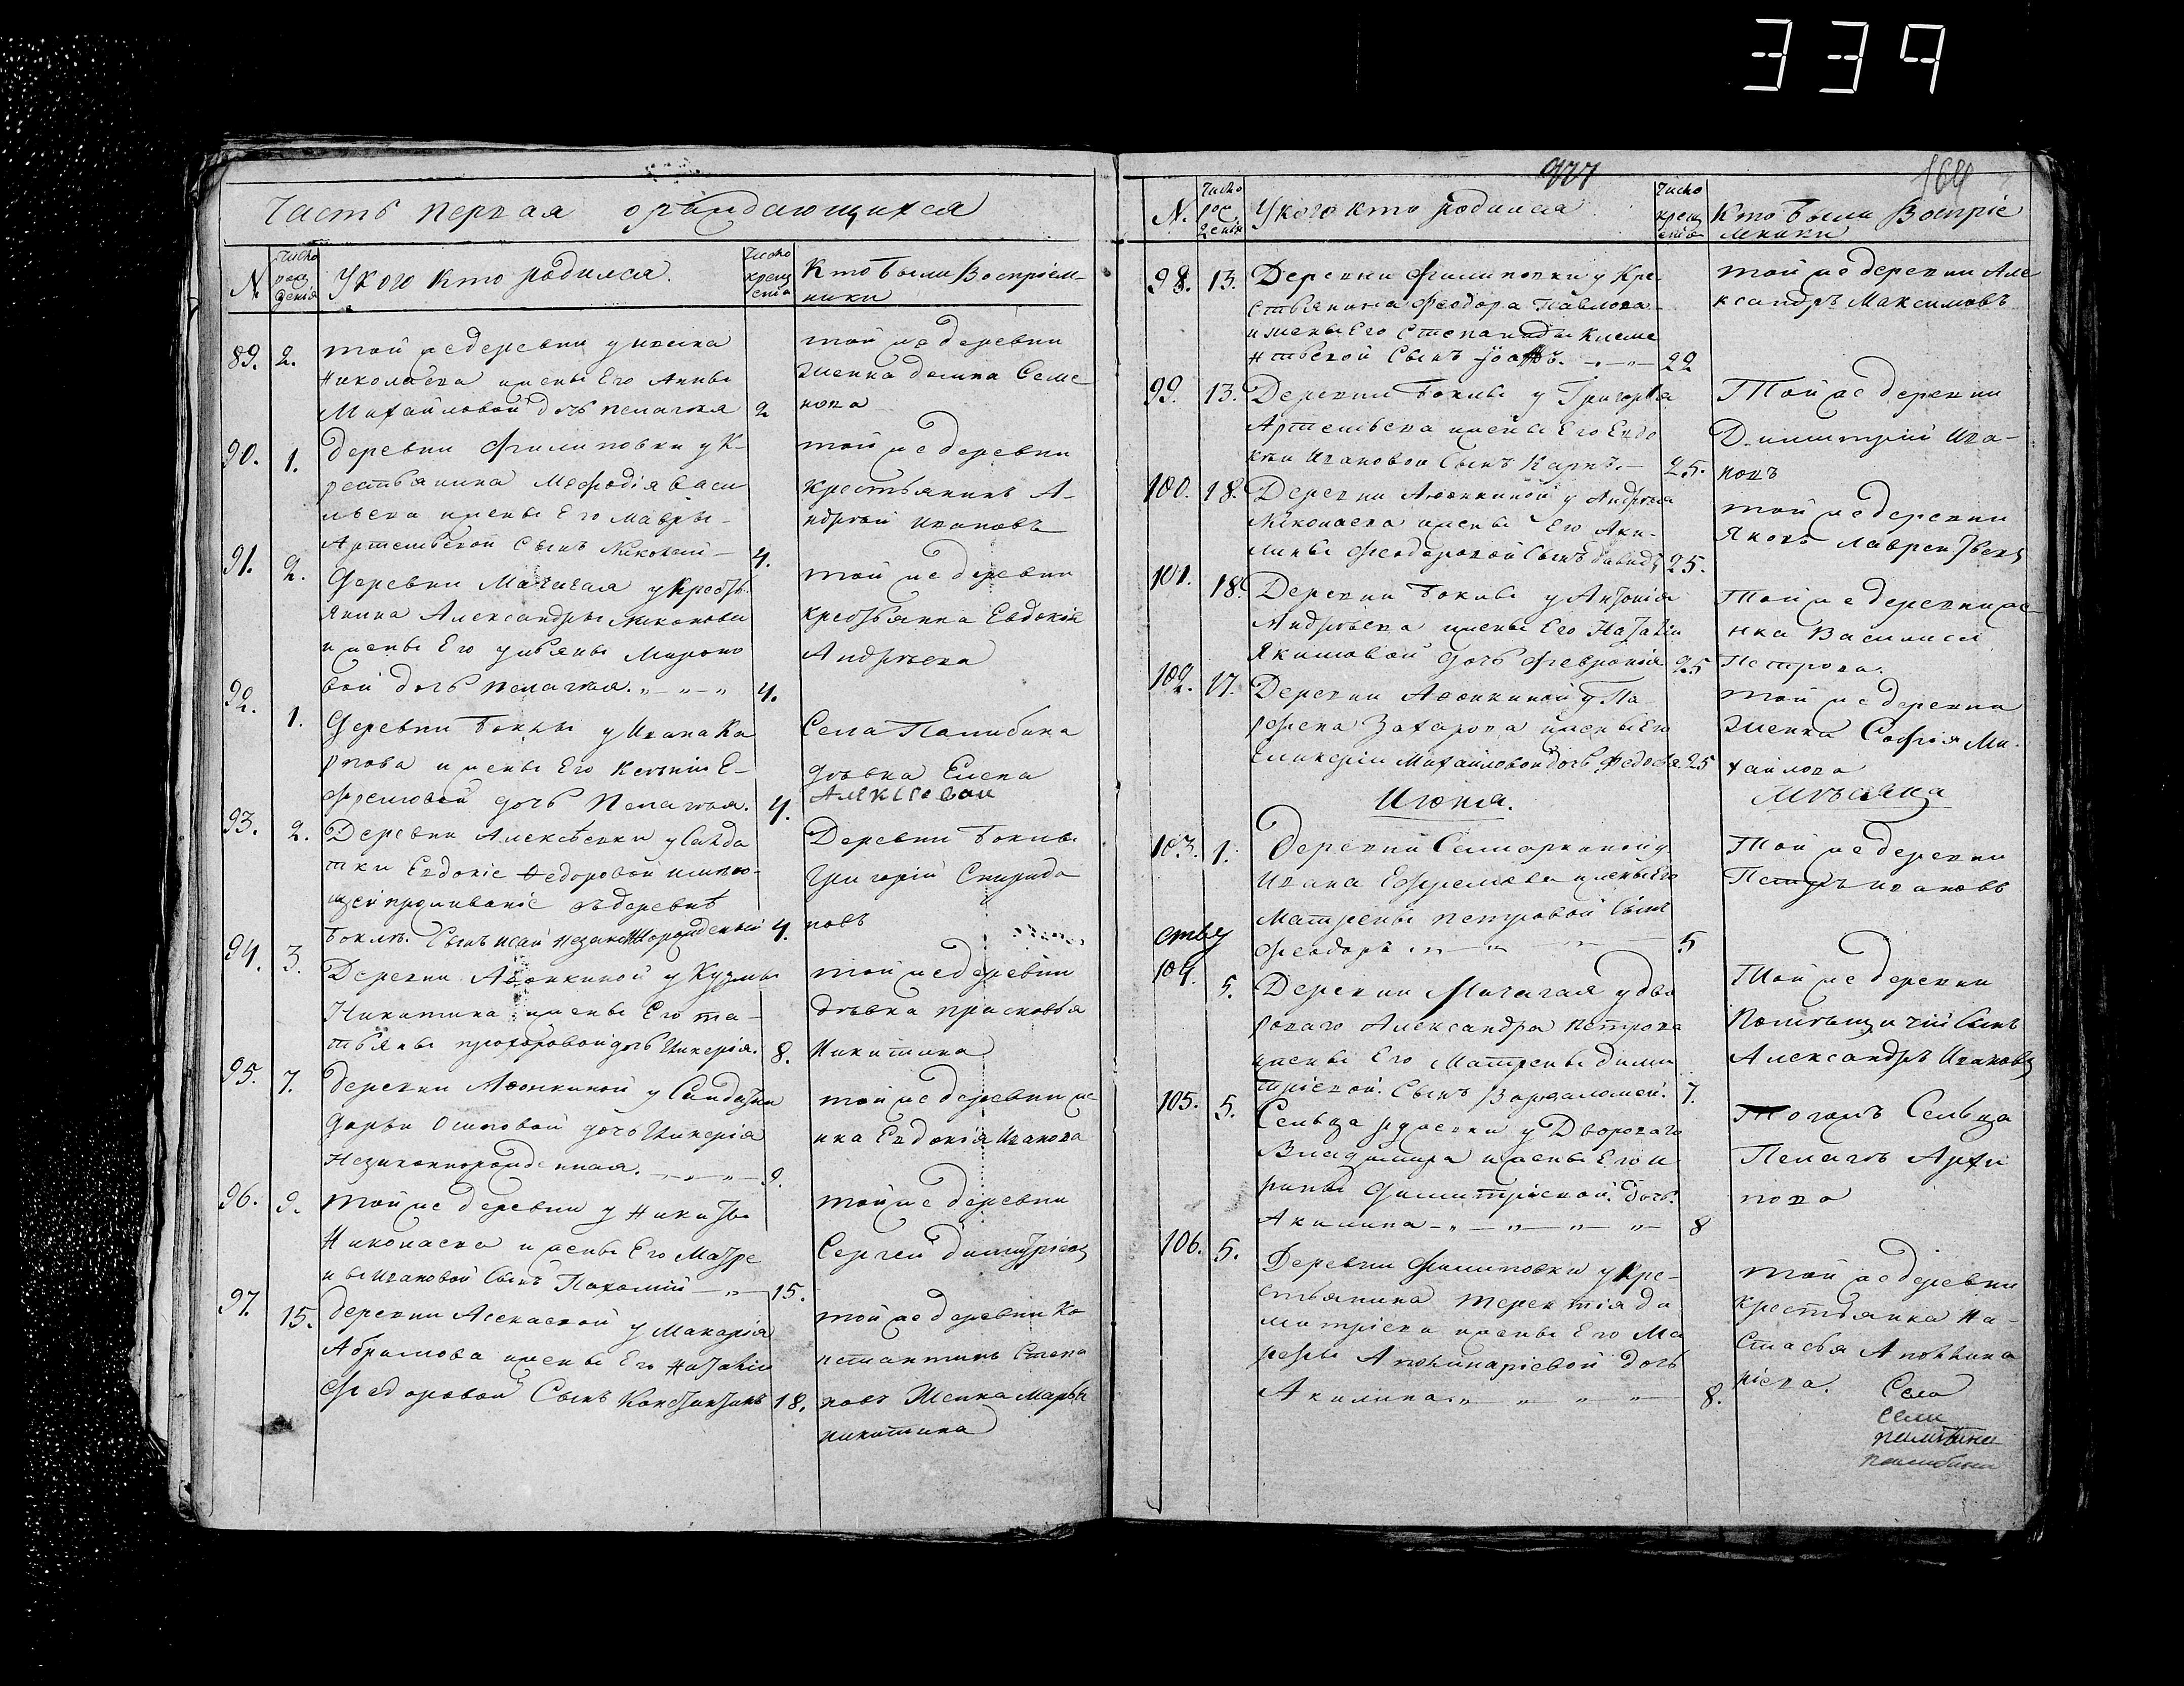 339
Часть первая о раждающихся
N.
Число рождения
У кого кто родился.
Число крещения
Кто были Восприемники
89. 2. той же деревни у
Николаева и жены Его Анны
Михайловой дочь пелагея 2
той же деревни
женка домна Семе
нова
90. 1. деревни Филиповки у К-
рестьянина Мефодія Васи
льева и жены Его Мавры
Артемьевой Сынъ Николай — 4.
той же деревни
крестьянинъ А-
ндрей Ивановъ
91. 2. Деревни Мачагая у Крест
янина Александры
и жены Его ульяны Мироно
вой дочь Пелагея. „ — „ — „ 4.
той же деревни
крестьянка Евдокія
Андреева
92. 1. Деревни Боклы у Ивана Ка
рпова и жены Его Ксеніи Е-
фремовой дочь Пелагея. 4.
Села Полибина
девка Елена
Алексеева
93. 2. Деревни Алексеевки у Салда
тки Евдокіе Федоровой имею-
щей проживаніе въ деревне
Боклы. Сынъ Исай незаконнорожденный 4.
Деревни Боклы
Григорій Спиридо
новъ
94. 3. Деревни Афонкиной у Кузмы
Никитина и жены Его та-
тьяны прохоровой дочь Гликерія. 8.
той же деревни
девка прасковья
Никитина
95. 7. деревни Афонкиной у Салдатки
Дарьи Осиповой дочь Гликерія
Незаконнорожденная. 9.
той же деревни же
нка Евдокія Иванова
96. 9. той же деревни у Никиты
Николаева и жены Его Матре
ны Ивановой Сынъ Пахомій — „ — 15.
той же деревни
Сергей димитріевъ
97. 15. деревни Асекаевой у Макарія
Абрамова и жены Его Наталіи
Федоровой Сынъ Константинъ 18.
той же деревни Ко
нстантинъ Степа
новъ Женка Марья
никитина
977
164
N.
Число рождения
У кого кто родился
Число крещения
Кто были Восприе
мники
98. 13. Деревни Филиповки у Кре
стьянина Феодора Павлова
и жены Его Степаниды Климе
нтьевой Сынъ Іоаннъ. — „ — 22
той же деревни Але
ксандръ Максимовъ
99. 13. Деревни Боклы у Григорья
Артемьева и жены Его Евдо
кии Ивановой Сынъ Карпъ. — 25.
Той же деревни
Димитрій Ива-
новъ
100. 18. Деревни Афонкиной у Андрея
Николаева и жены Его Аку-
лины Феодоровой Сынъ Давидъ 25.
той же деревни
Яковъ Лаврентьевъ
101. 18. Деревни Боклы у Антонія
Андреева и жены Его Наталіи
Якимовой дочь Февронія 25
Той же деревни же
нка Василиса
Петрова.
102. 17. Деревни Афонкиной у Па
рфена Захарова и жены Его
Гликеріи Михайловой дочь Федосья 25
той же деревни
женка Софія Ми-
хайлова
Июня.
Месяца
103. 1. Деревни Самаркиной у
Ивана Ефремова и жены Его
Матрены петровой Сынъ
Феодоръ 5
Той же деревни
Петръ Ивановъ
ству
104. 5. Деревни Мачагая у дво
роваго Александра петрова
и жены Его Матрены дими
тріевой. Сынъ Варфаломей. 7.
Той же деревни
Помещичій Сынъ
Александръ Ивановъ
105. 5. Сельца у Двороваго
Владимира и жены Его И
рины Димитріевой. Дочь
Акилина — „ — „ — „ — „ — 8
Тогожъ Сельца
Пелагея Архи
пова
106. 5. Деревни Филиповки у Кре-
стьянина терентія ди
митріева и жены Его Ма
рфы Аполинаріевой дочь
Акилина „ „ „ „ 8.
той же деревни
крестьянка На-
стасья Аполлина
ріева.
Села
Сели
полибина
полибина